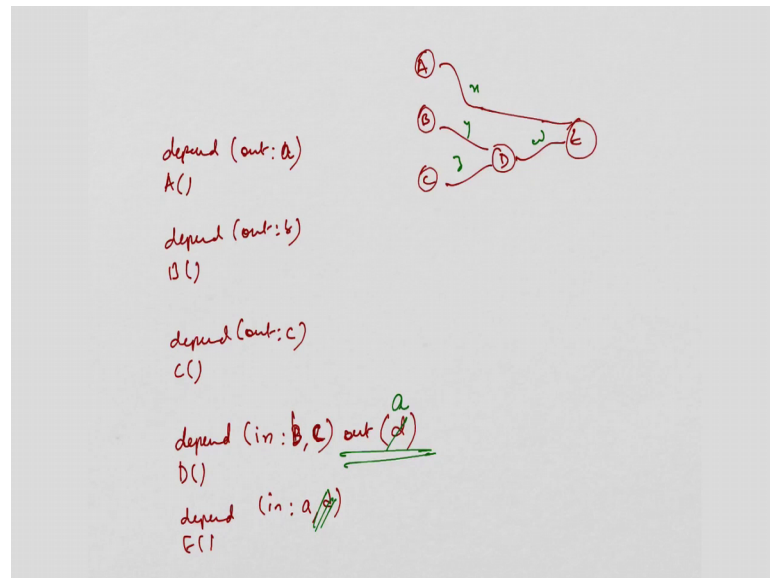 A
x
B
y
w
E
D
C
z
depend (out: a)
A()
depend (out: b)
B()
depend (out: c)
C()
a
depend (in: B, C) out (d)
D()
depend (in: a, d)
E()